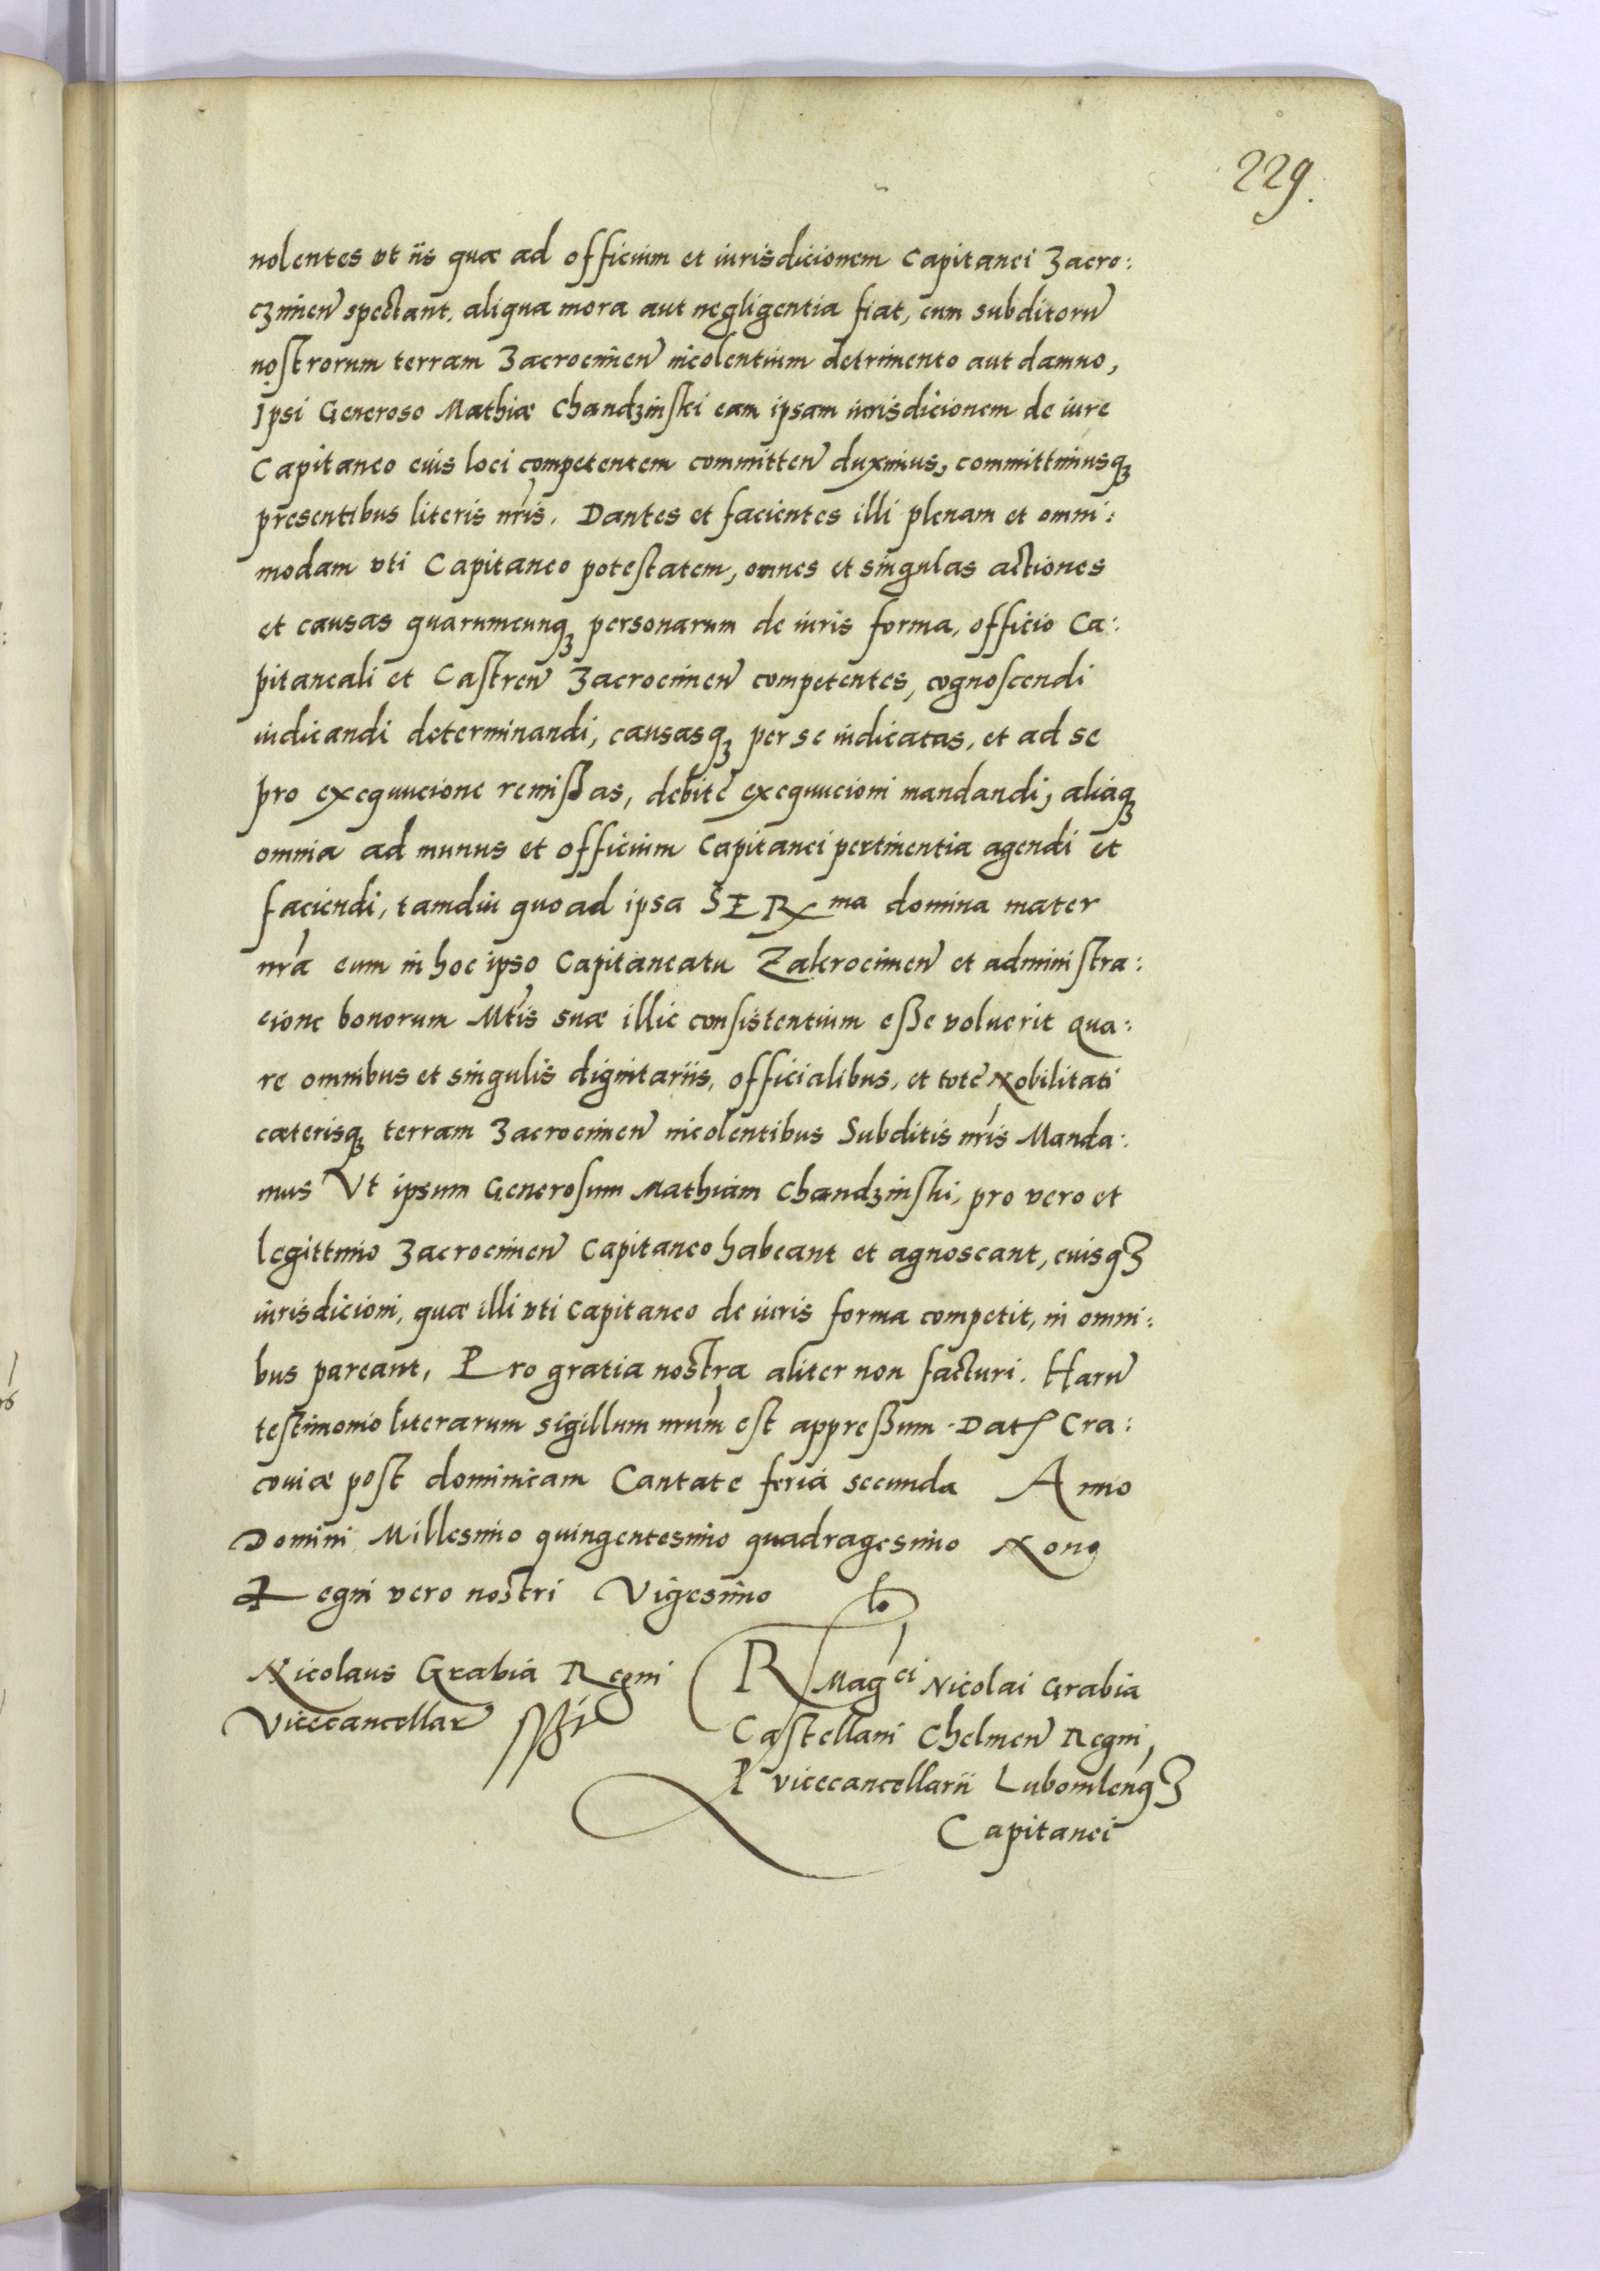 229.
nolentes vt iis quæ ad officium et iurisdicionem Capitanei Zacro:
czimen̄ spectant, aliqua mora aut negligentia fiat, cum subditorū
nostrorum terram Zacrocimen̄ incolentium detrimento aut damno,
Ipsi Generoso Mathiæ Chandzinski eam ipsam iurisdicionem de iure
Capitaneo eius loci competentem committen̄ duximus, committimusqꝫ
presentibus literis nr̄is. Dantes et facientes illi plenam et omni:
modam vti Capitaneo potestatem, omnes et singulas actiones
et causas quarumcunqꝫ personarum de iuris forma, officio Ca:
pitaneali et Castren̄ Zacrocimen̄ competentes, cognoscendi
iudicandi determinandi, causasqꝫ per se iudicatas, et ad se
pro exequucione remissas, debitè exequucioni mandandi, aliaqꝫ
omnia ad munus et officium Capitanei pertinentia agendi et
faciendi, tamdiu quoad ipsa SERma domina mater
nr̄a eum in hoc ipso Capitaneatu Zakrocimen̄ et administra:
cione bonorum Mtis suæ illic consistentium esse voluerit Qua:
re omnibus et singulis dignitariis, officialibus, et toti Nobilitati
cæterisqꝫ terram Zacrocimen̄ incolentibus Subditis nr̄is Manda:
mus Vt ipsum Generosum Mathiam Chandzinski, pro vero et
legittimo Zacrocimen̄ Capitaneo habeant et agnoscant, eiusqꝫ
iurisdicioni, quæ illi vti Capitaneo de iuris forma competit, in omni:
bus pareant, Pro gratia nostra aliter non facturi. Harū
testimonio literarum sigillum nr̄um est appressum. Dat Cra:
coviæ post dominicam Cantate feria secunda Anno
Domini Millesimo quingentesimo quadragesimo Nono
Regni vero nostri Vigesimo
Nicolaus Grabia Regni
Vicecancellar̄ sst
Rlo Magci Nicolai Grabia
Castellani Chelmen̄ Regni,
P vicecancellarii Lubomlenqꝫ
Capitanei